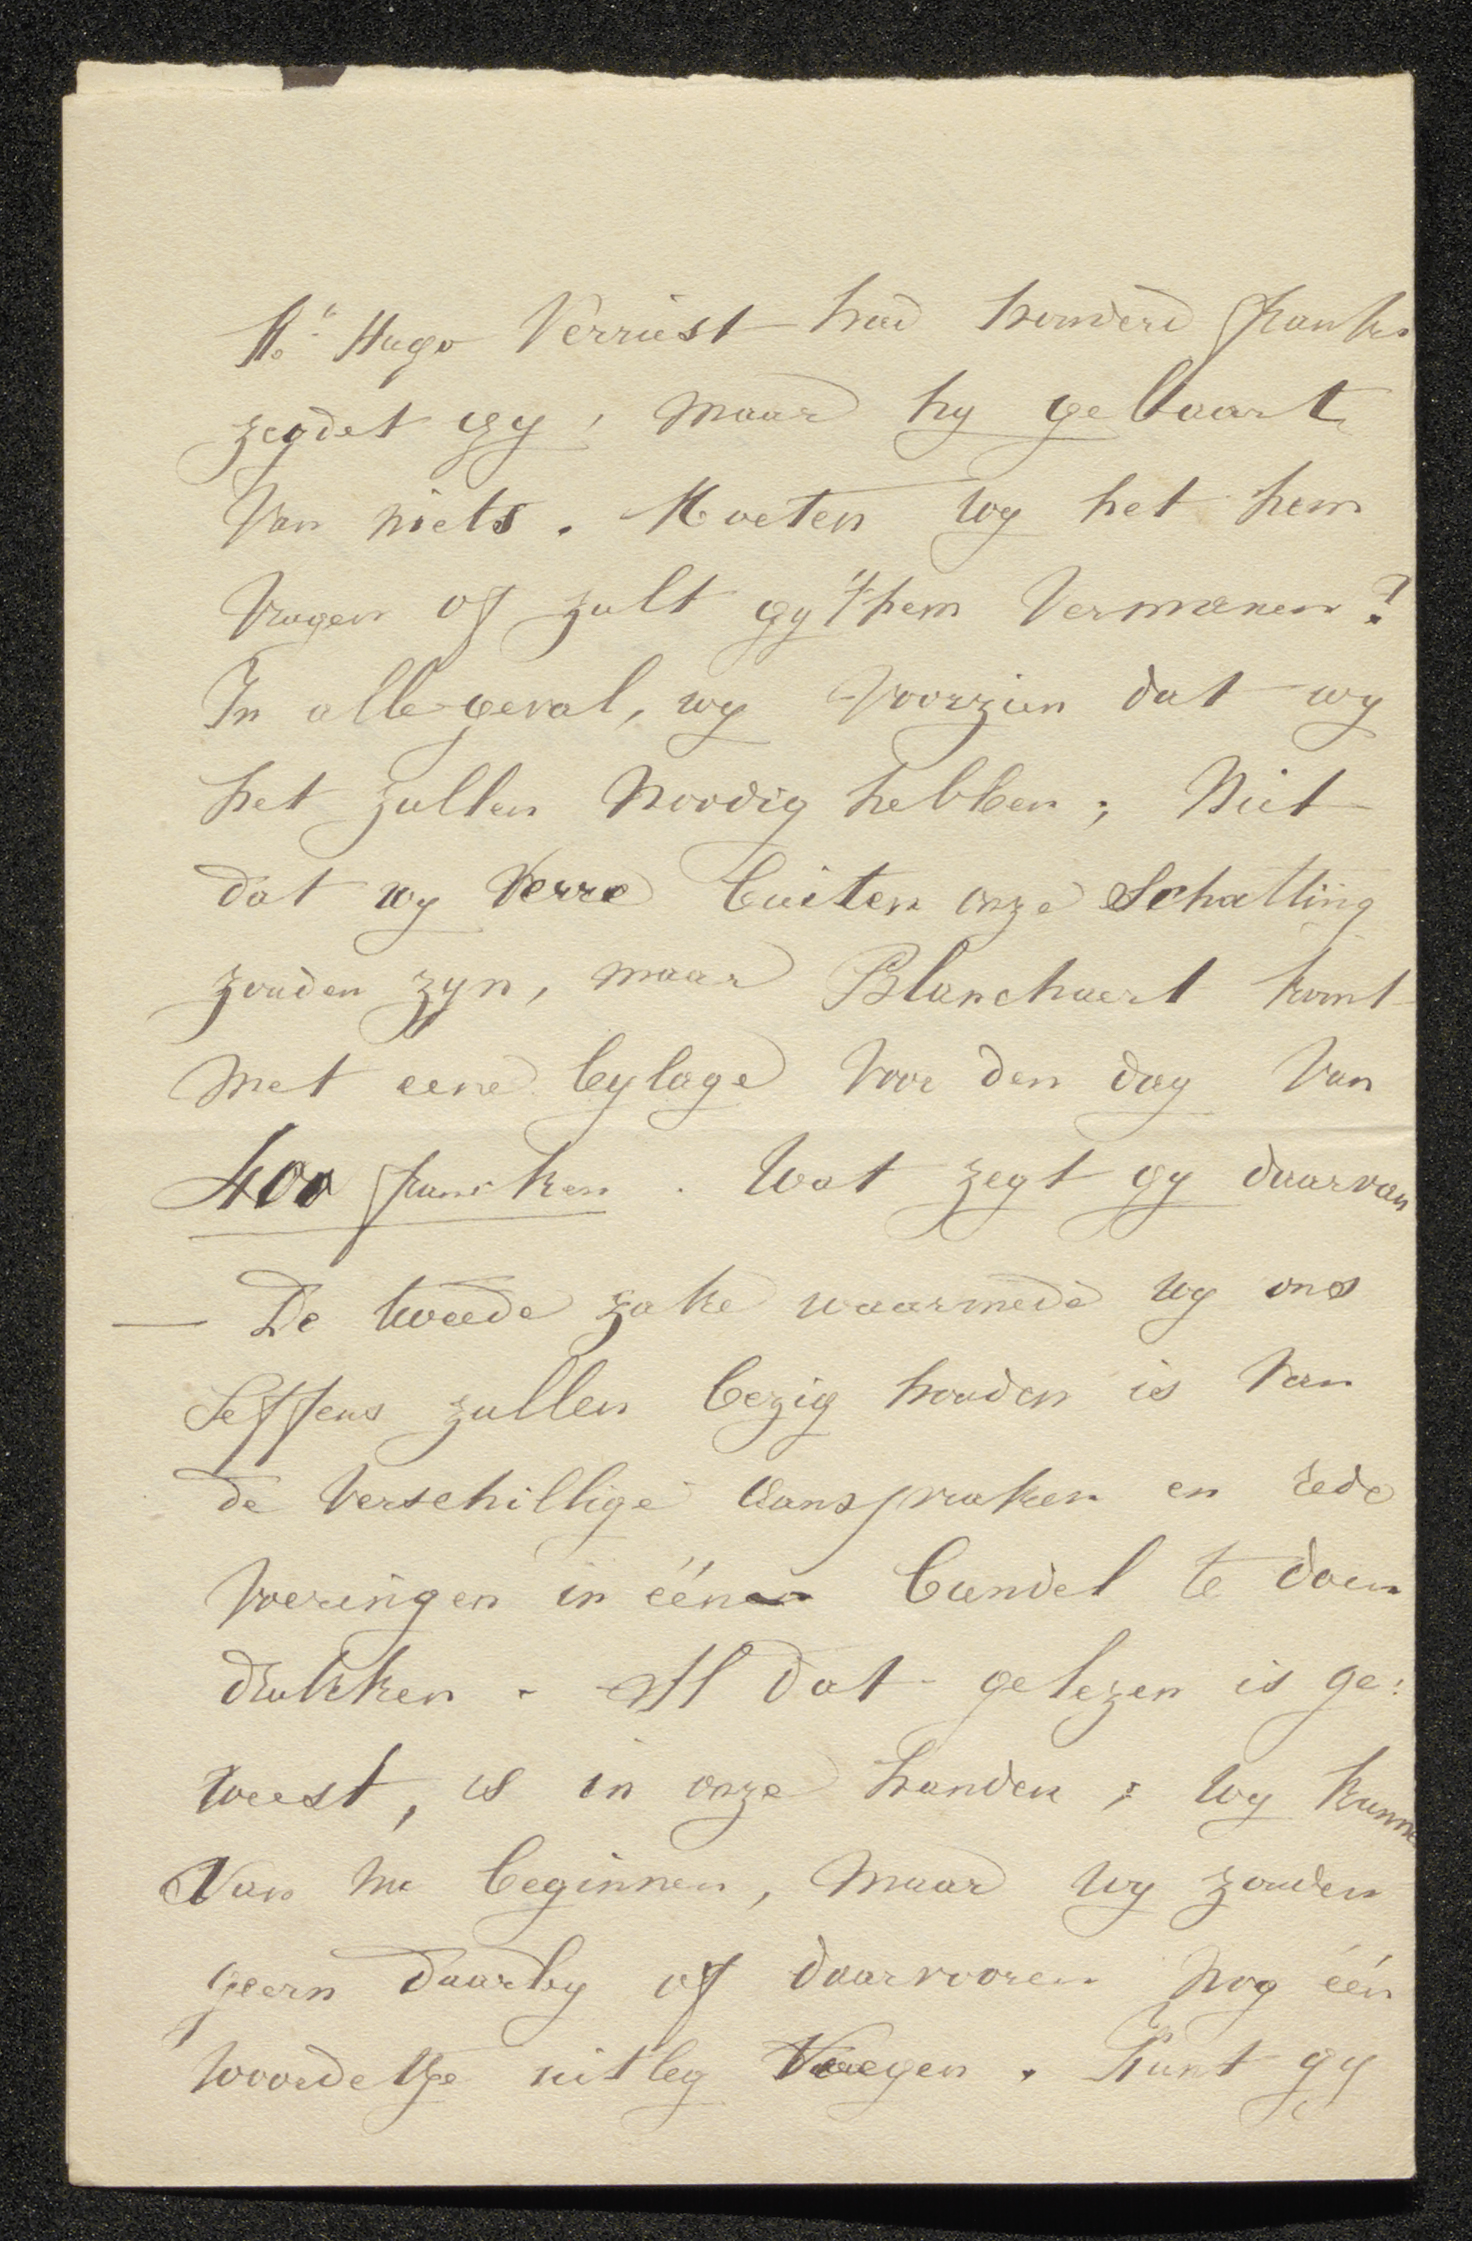 Mr Hugo Verriest had honderd frank.
zegdet gy, maar hy gebaart
van niets. Moeten wy het hem
vragen of zult gy 't hem vermanen?
In alle geval, wy voorzien dat wy
het zullen noodig hebben; Niet
dat wy verre buiten onze schatting
zouden zyn, maar Blanchaert komt
met eene bylage voor den dag van
400 franken. Wat zegt gy daarvan
— De tweede zake waarmede wy ons
seffens zullen bezig houden is van
de verschillige aanspraken en rede
voeringen in éénen bundel te doen
drukken. Al dat gelezen is ge:
weest, is in onze handen; wy kunne
van nu beginnen, maar wy zouden
geern daarby of daarvooren nog één
woordetje uitleg voegen. Kunt gy